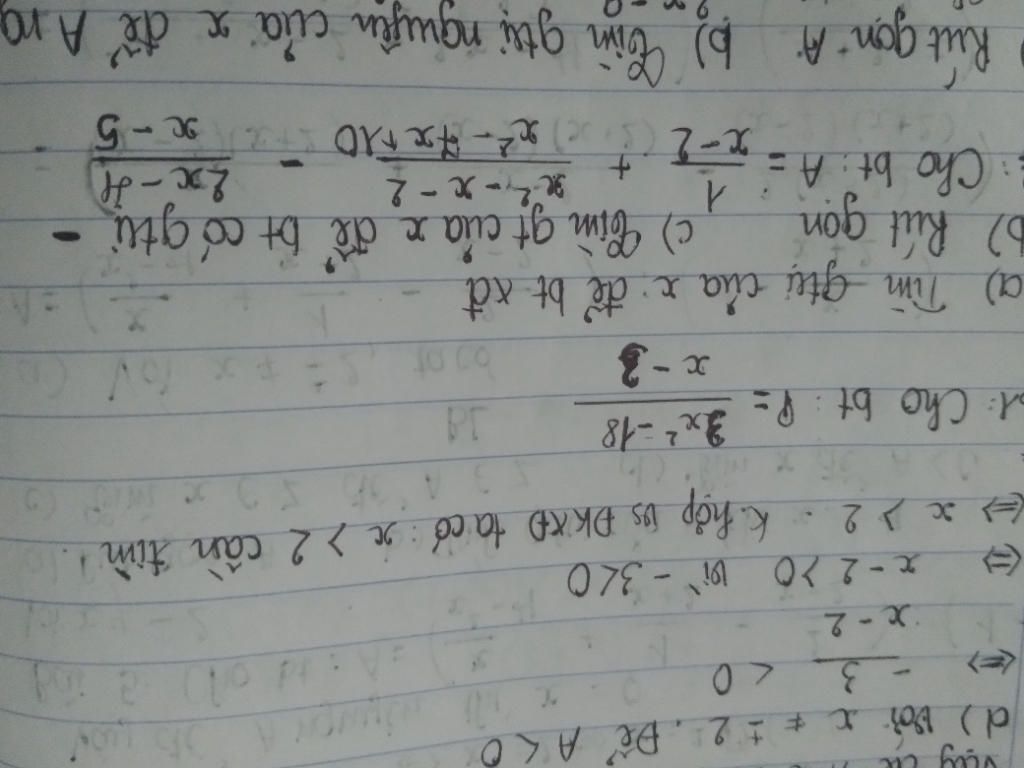 d) Với x ≠ ± 2. Để A < 0
⇔ - 3 / x - 2 < 0
⇔ x - 2 > 0 vì - 3 < 0
⇔ x > 2. K.hợp vs ĐKXĐ ta có: x > 2 cần tìm.
Cho bt: P = 2x² - 18 / x - 3
a) Tìm gtrị của x để bt xđ
b) Rút gọn c) Tìm gt của x để bt có gtrị -
Cho bt: A = 1 / x - 2 + x² - x - 2 / x² - 7x + 10 - 2x - 4 / x - 5
Rút gọn A b) Tìm gtrị nguyên của x để A ng